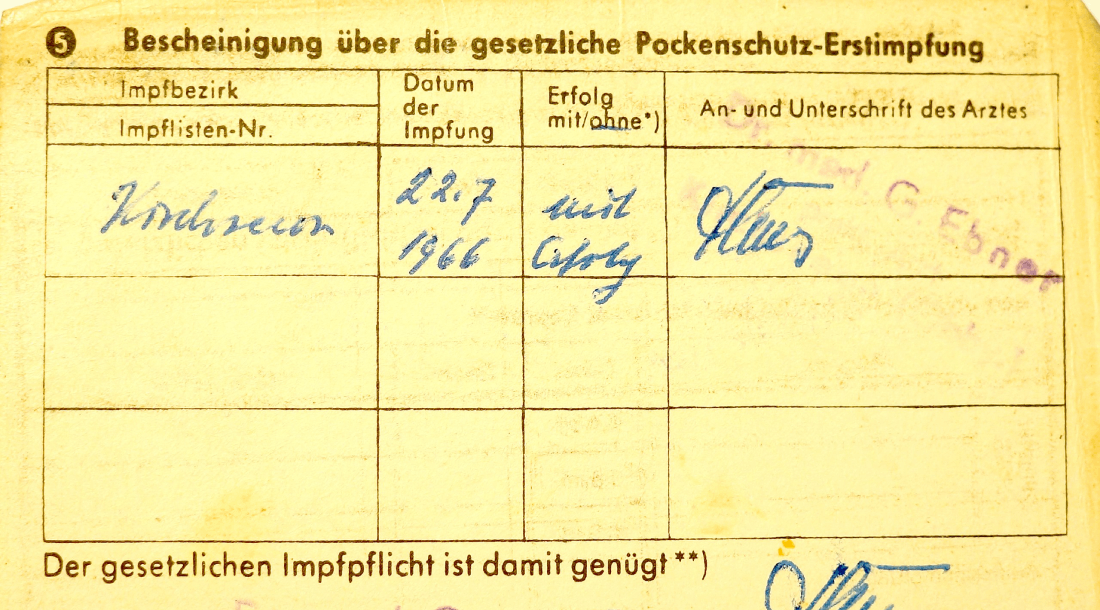 5 Bescheinigung über die gesetzliche Pockenschutz-Erstimpfung
Impfbezirk
Impflisten-Nr.
Datum
der
Impfung
Erfolg
mit/ohne*)
An- und Unterschrift des Arztes
22.7
1966
mit
Erfolg
Dr. med. G. Ebner
Der gesetzlichen Impfpflicht ist damit genügt**)